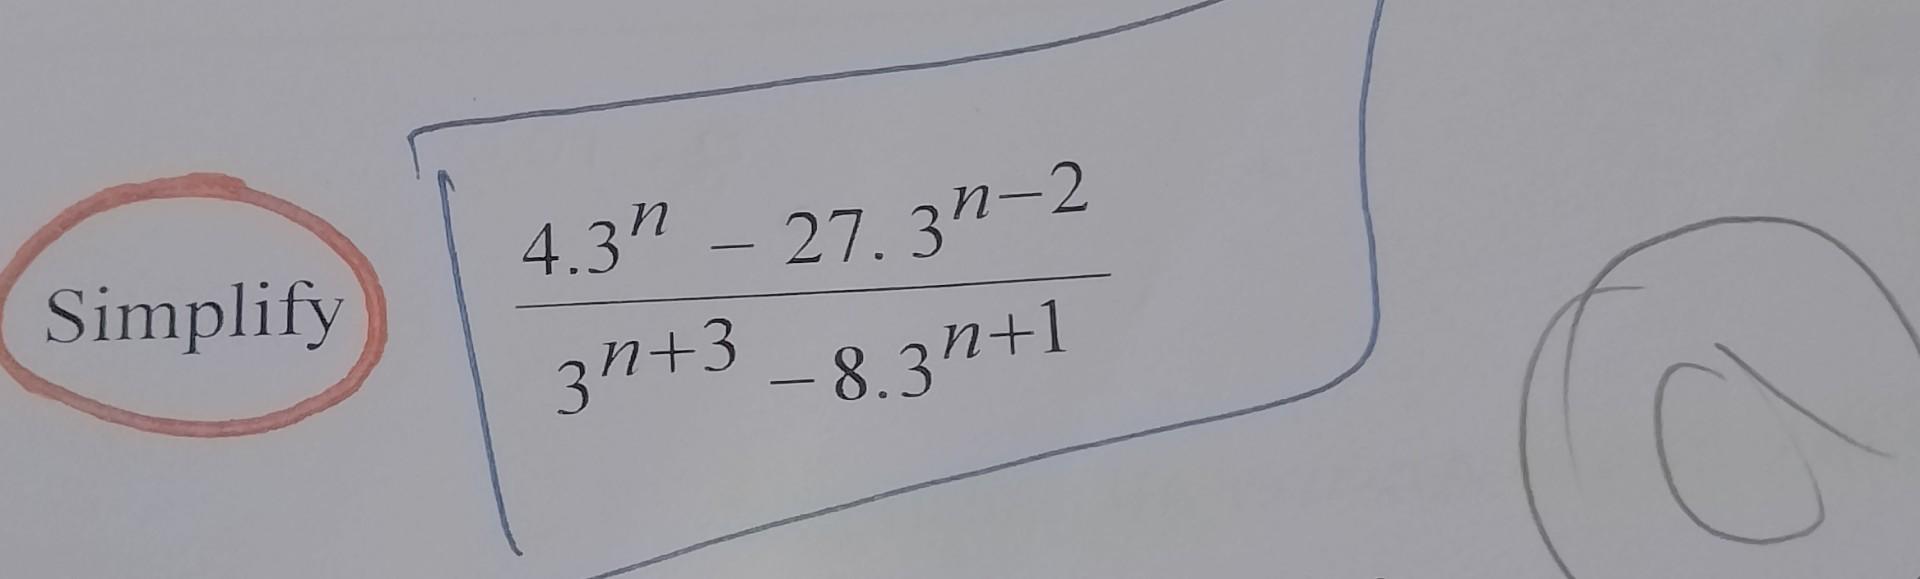 Simplify
4.3ⁿ – 27. 3ⁿ⁻²
3ⁿ⁺³ – 8.3ⁿ⁺¹